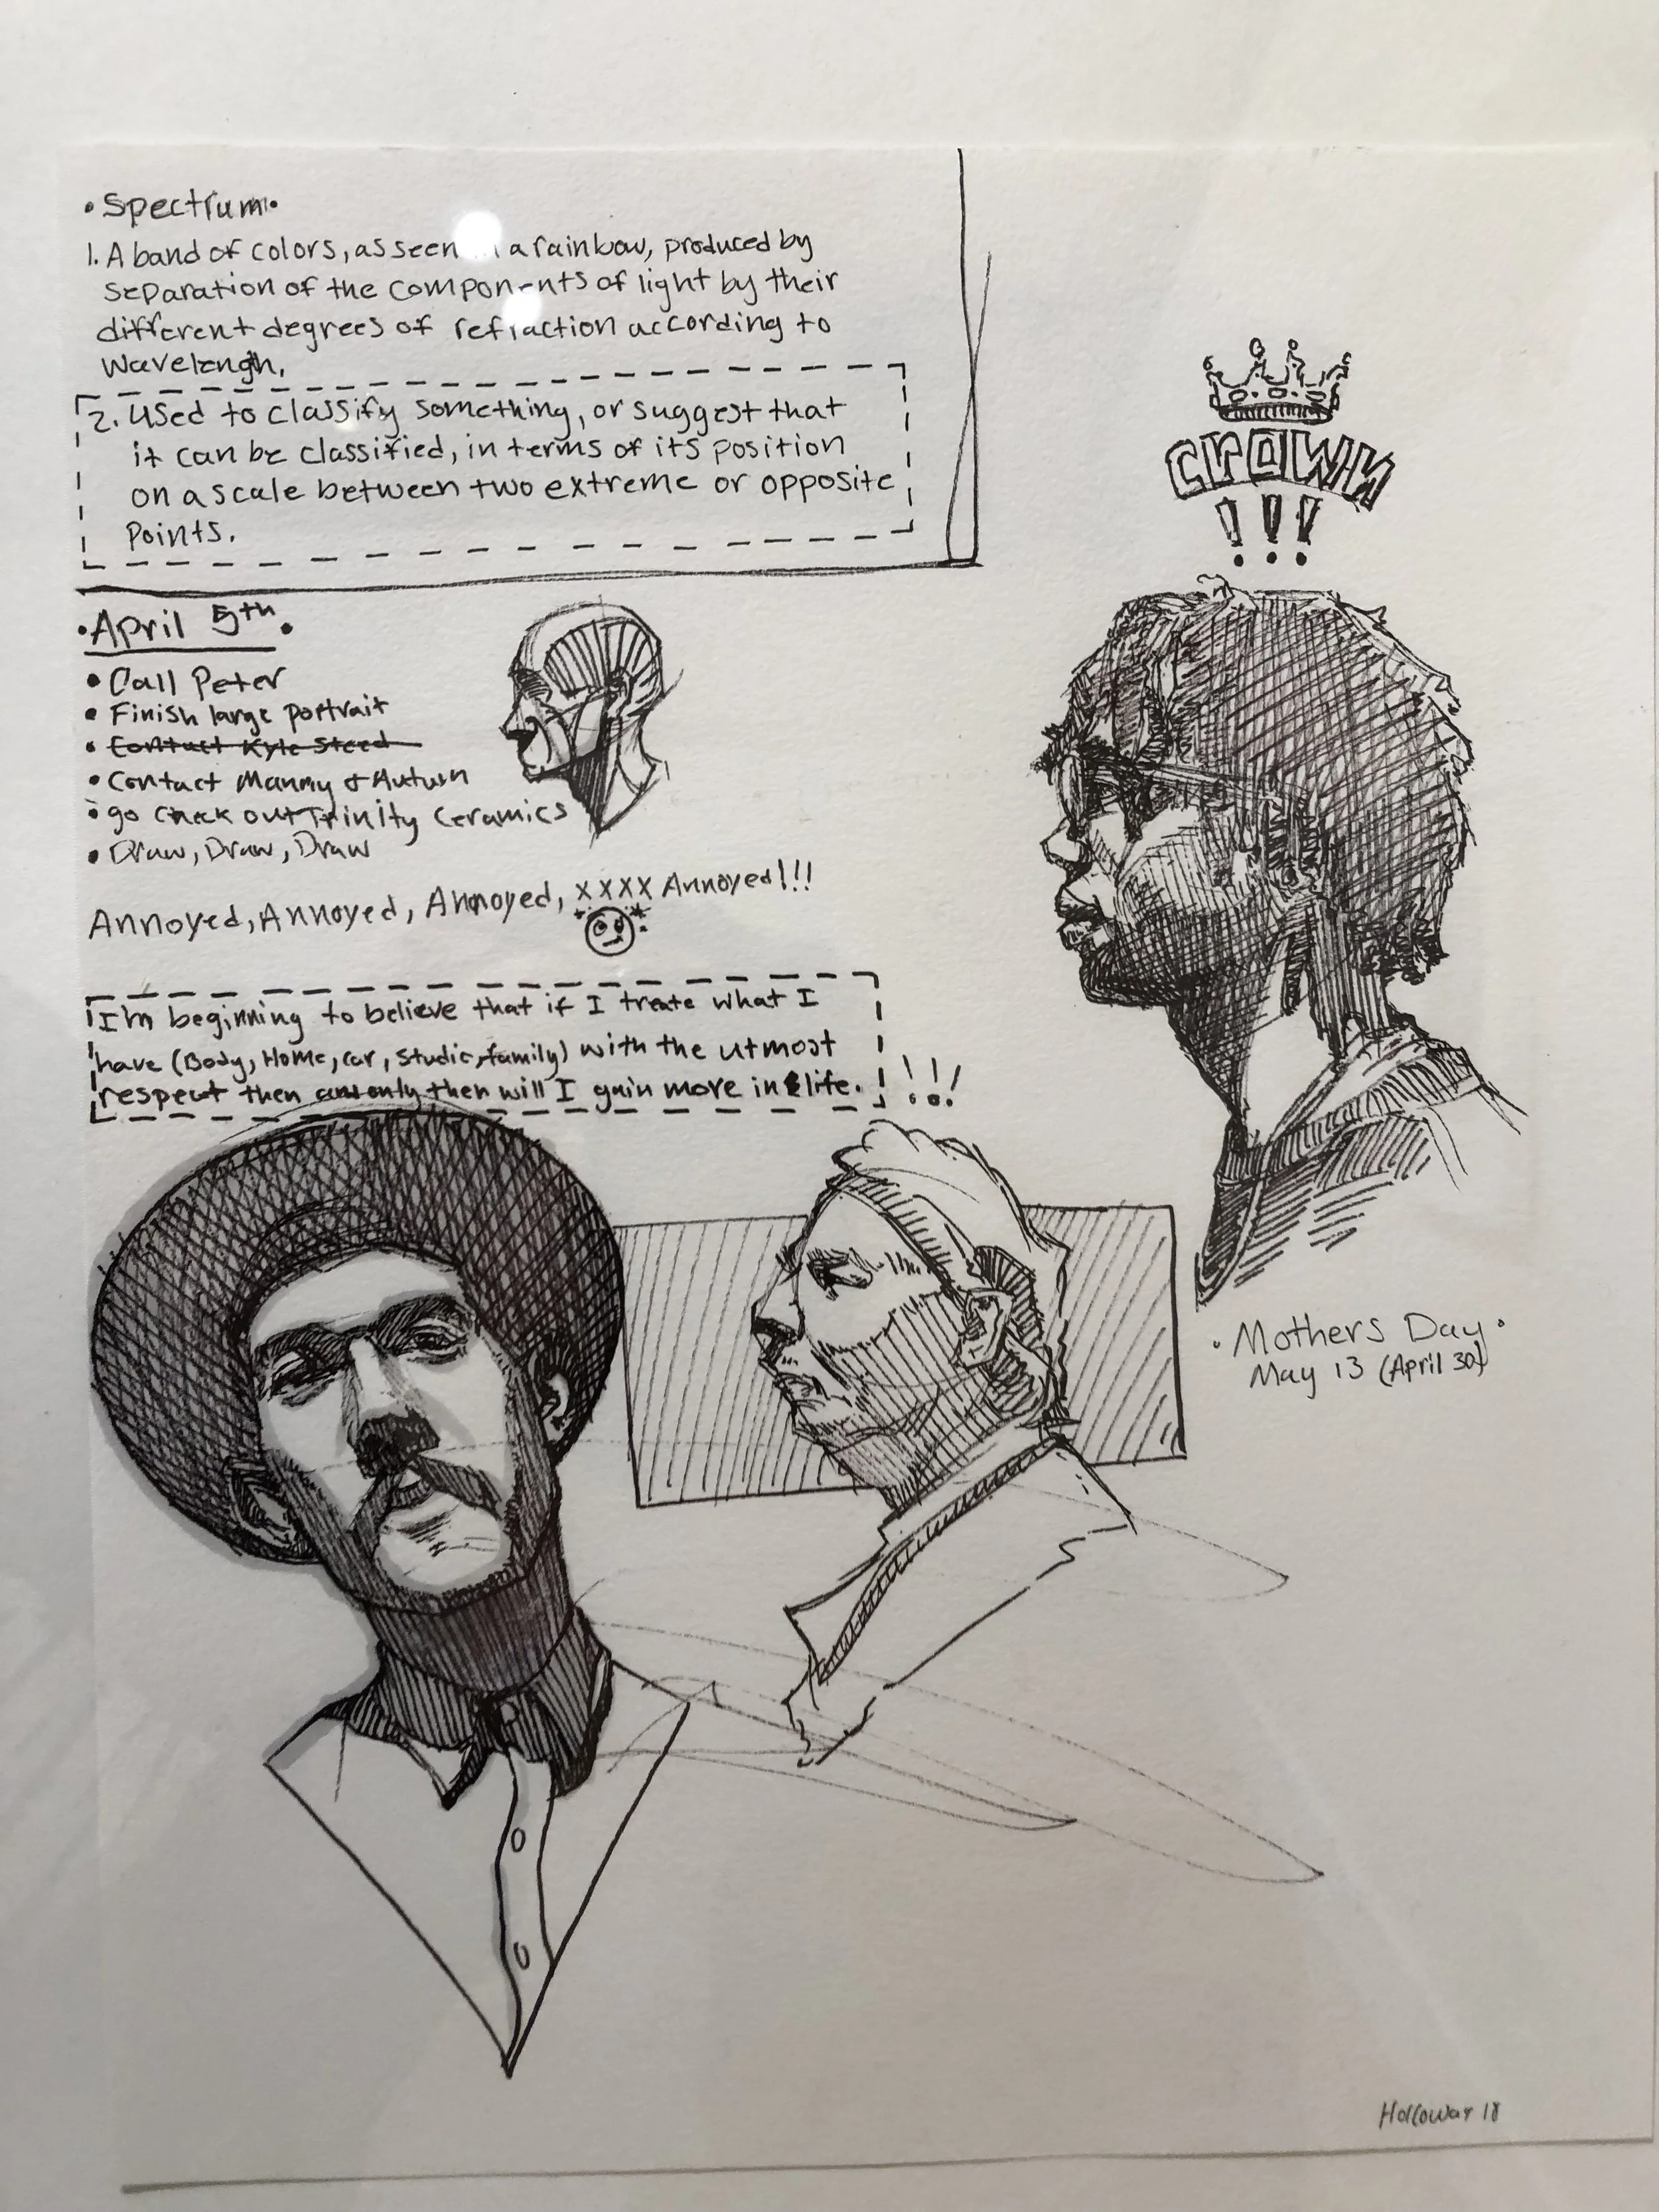 • Spectrum •
1. A band of colors, as seen a rainbow, produced by
separation of the components of light by their
different degrees of refraction according to
wavelengh.
2. Used to classify something, or suggest that
it can be classified, in terms of its position
on a scale between two extreme or opposite
points.
• April 5th •
• Call Peter
• Finish large portrait
• Contact Kyle Steed
• Contact Manny & Autum
• go check out Trinity Ceramics
• Draw, Draw, Draw
Annoyed, Annoyed, Annoyed, xxxx Annoyed!!!
I'm beginning to believe that if I treate what I
have (Body, Home, car, studio, family) with the utmost
respect then only then will I gain more in life. !!!
CROWN
!!!
• Mothers Day •
May 13 (April 30)
Holloway 18